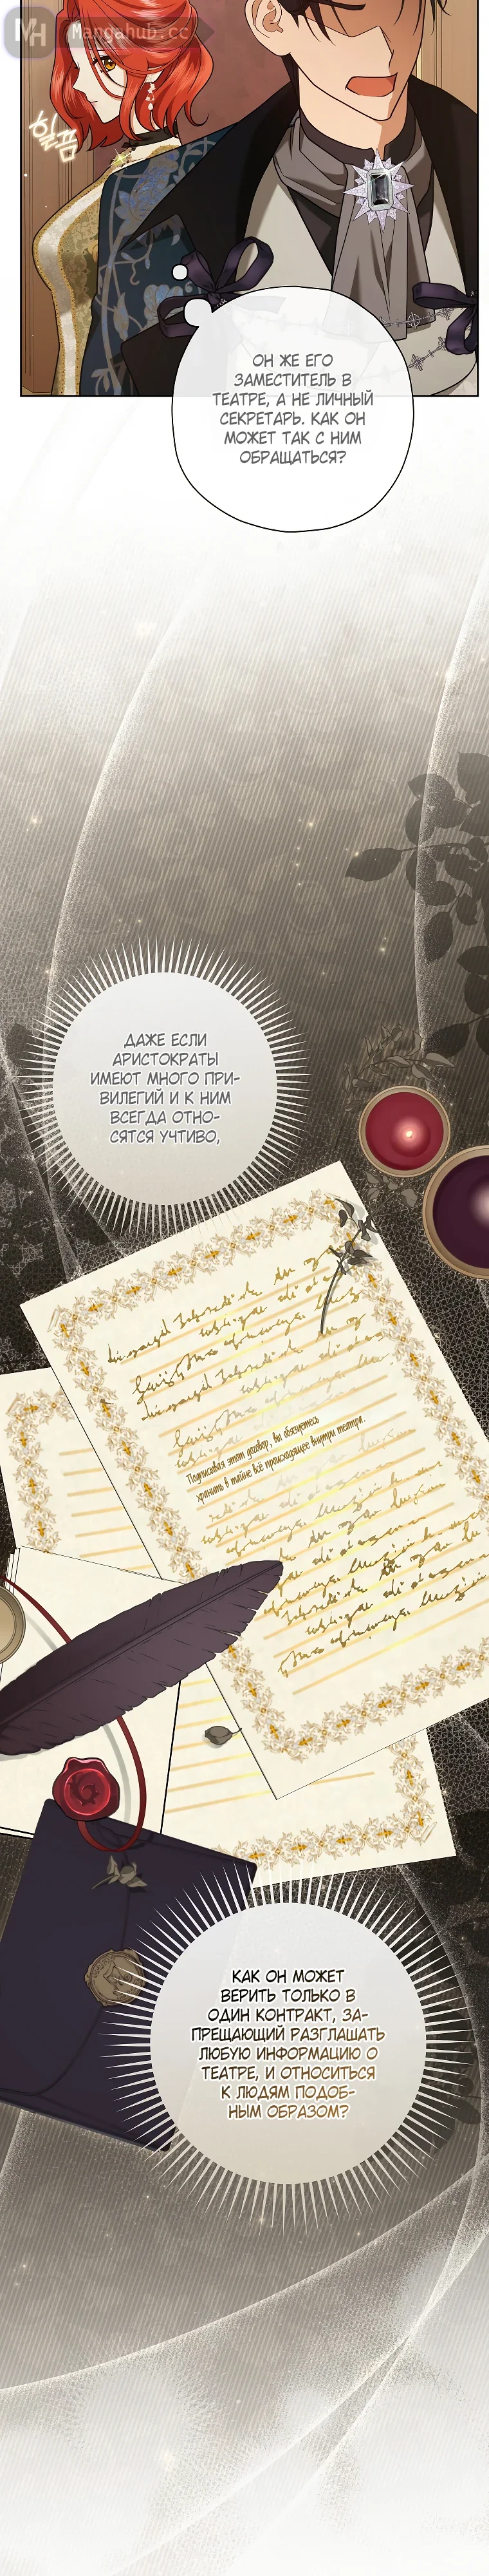 MH Mangahub.cc
힐끔
ОН ЖЕ ЕГО
ЗАМЕСТИТЕЛЬ В
ТЕАТРЕ, А НЕ ЛИЧНЫЙ
СЕКРЕТАРЬ. КАК ОН
МОЖЕТ ТАК С НИМ
ОБРАЩАТЬСЯ?
ДАЖЕ ЕСЛИ
АРИСТОКРАТЫ
ИМЕЮТ МНОГО ПРИ-
ВИЛЕГИЙ И К НИМ
ВСЕГДА ОТНО-
СЯТСЯ УЧТИВО,
Подписывая этот договор, вы обязуетесь
хранить в тайне всё происходящее внутри театра.
КАК ОН МОЖЕТ
ВЕРИТЬ ТОЛЬКО В
ОДИН КОНТРАКТ, ЗА-
ПРЕЩАЮЩИЙ РАЗГЛАШАТЬ
ЛЮБУЮ ИНФОРМАЦИЮ О
ТЕАТРЕ, И ОТНОСИТЬСЯ
К ЛЮДЯМ ПОДОБ-
НЫМ ОБРАЗОМ?